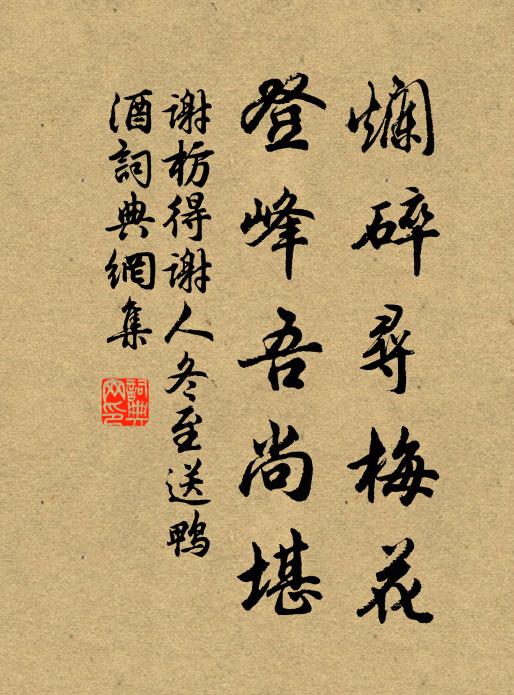 爛碎尋梅花
登峰吾尚堪
謝枋得謝人冬至送鴨
酒詞典網集
詞典
網印